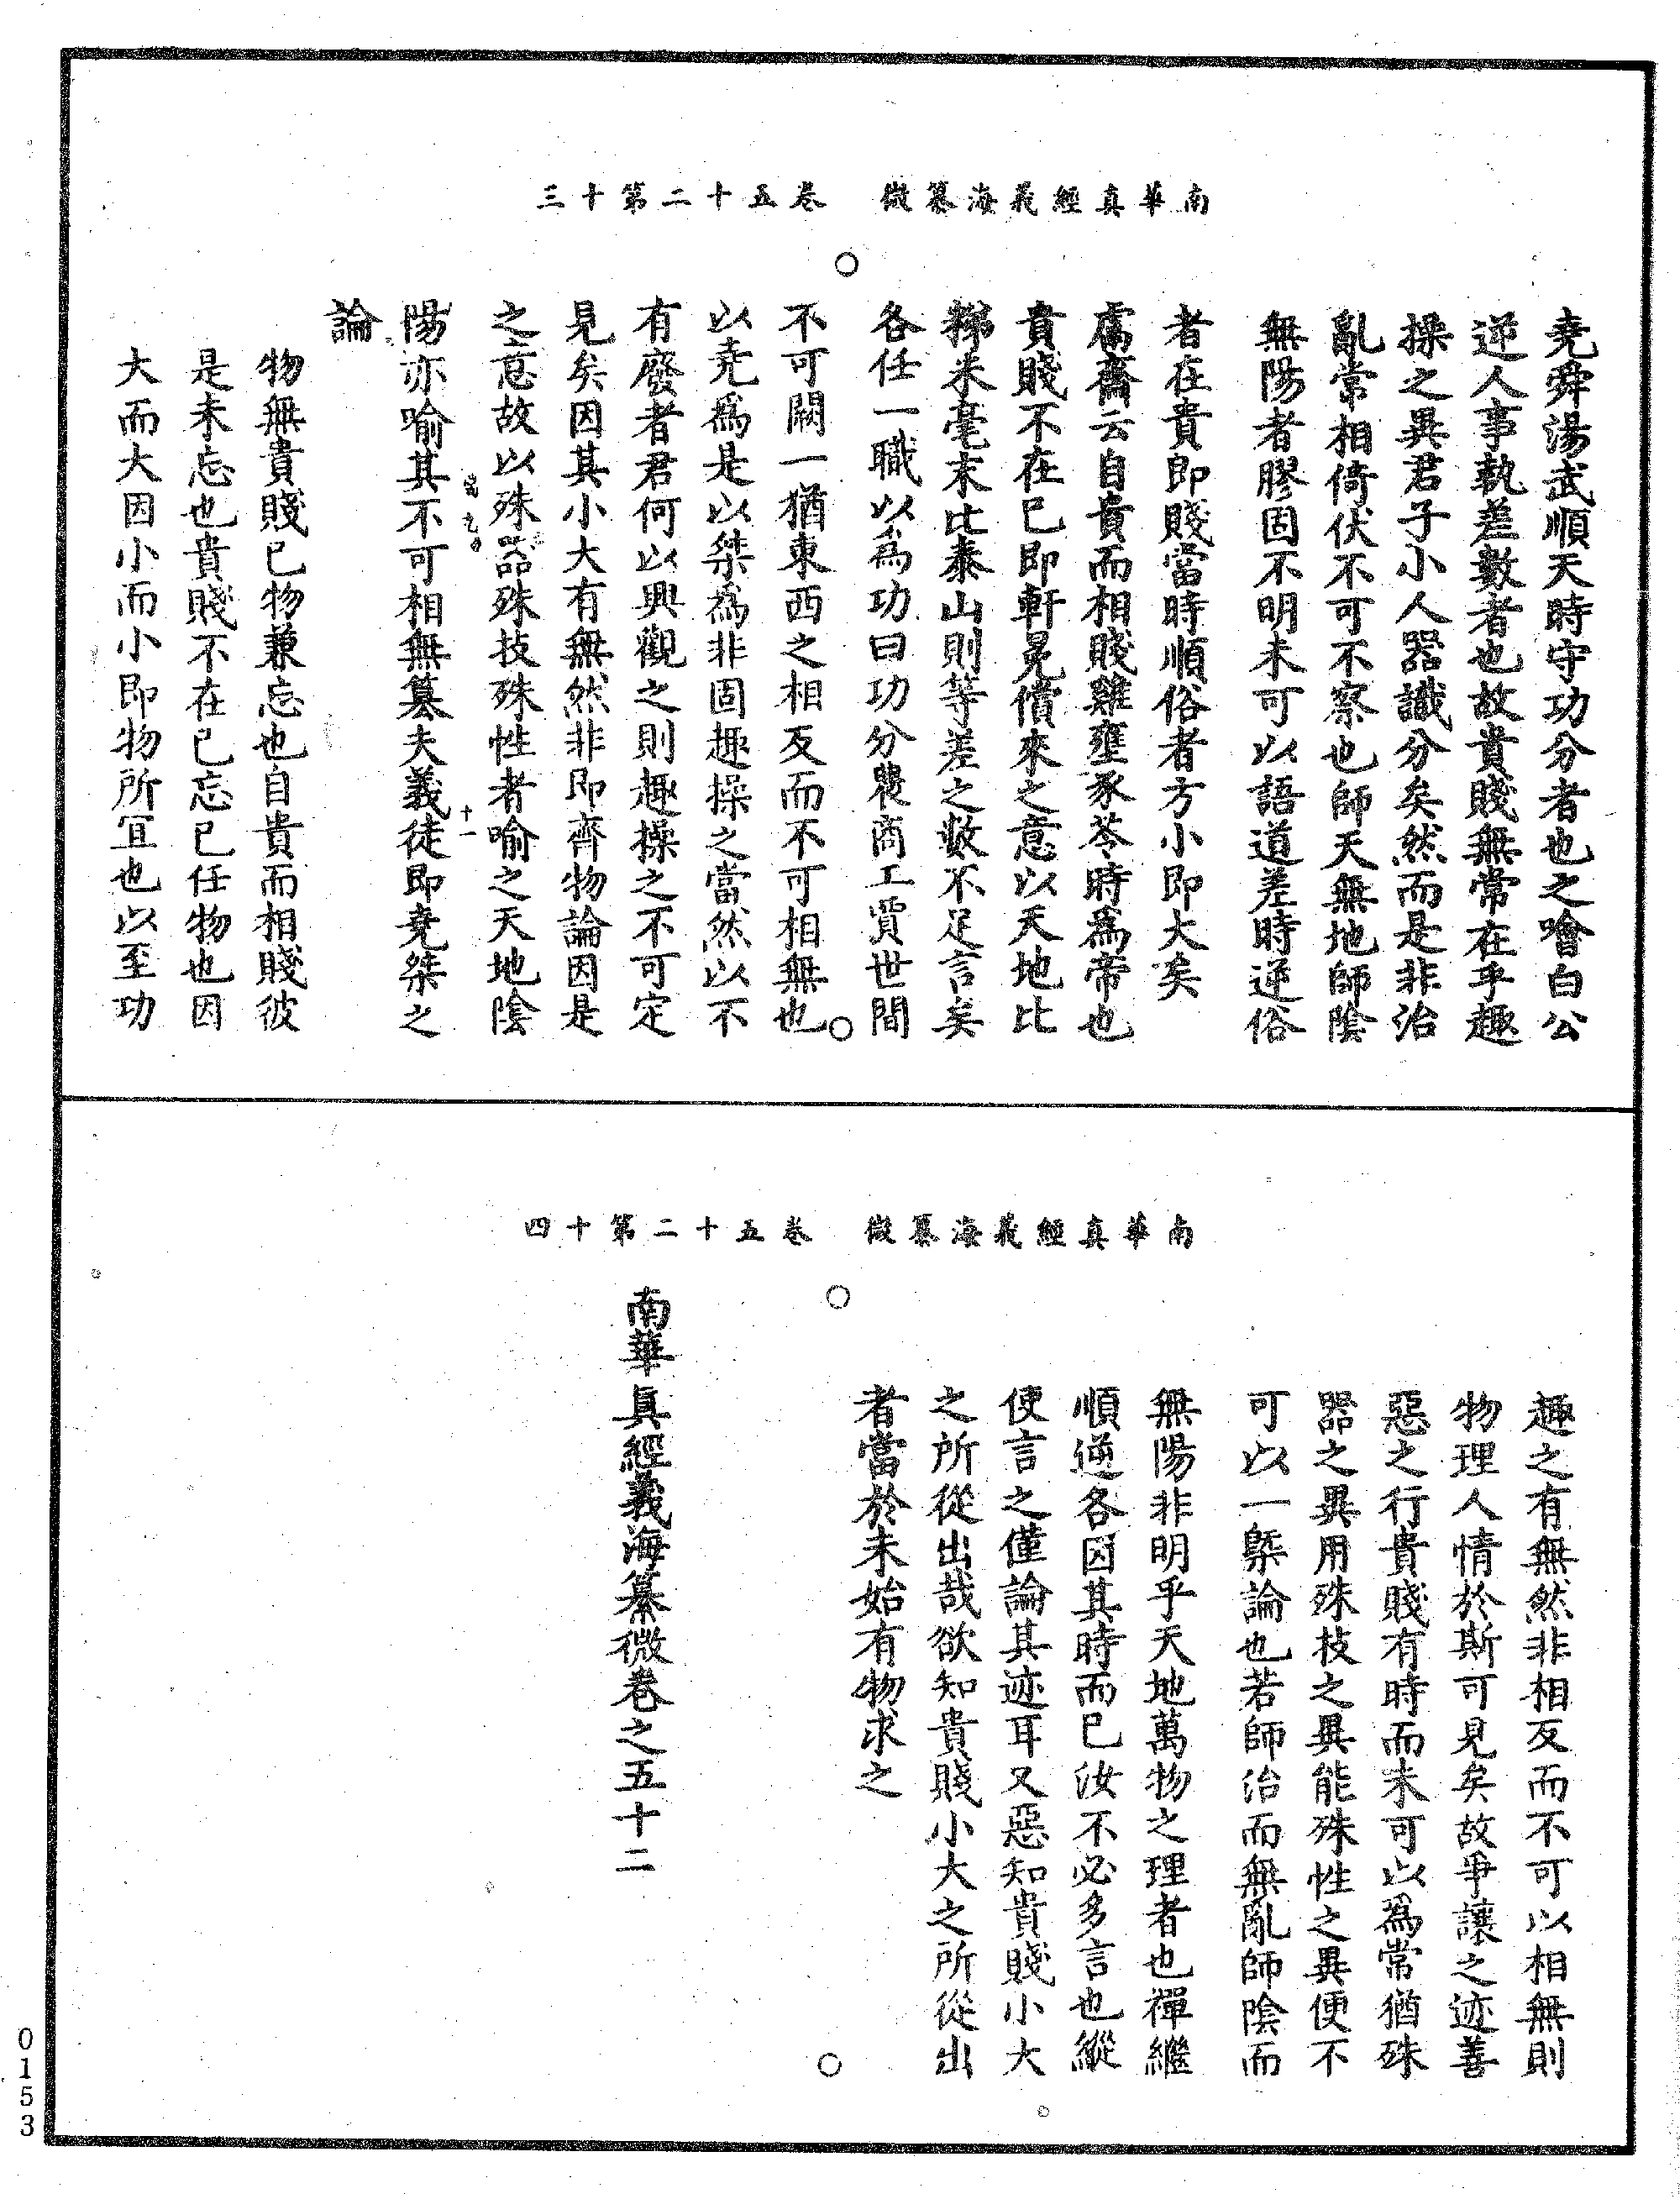 南華真經義海纂微 卷五十二第十三
堯舜湯武順天時守功分者也之噲白公
逆人事執差數者也故貴賤無常在乎趣
操之異君子小人器識分矣然而是非治
亂常相倚伏不可不察也師天無地師陰
無陽者膠固不明未可以語道差時逆俗
者在貴即賤當時順俗者方小即大矣
鬳齋云自貴而相賤雞壅豕苓時為帝也
貴賤不在已即軒冕儻來之意以天地比
稊米毫末比泰山則等差之數不足言矣
各任一職以為功曰功分農商工賈世間
不可闕一猶東西之相反而不可相無也
以堯為是以桀為非固趣操之當然以不
有廢者君何以興觀之則趣操之不可定
見矣因其小大有無然非即齊物論因是
之意故以殊器殊技殊性者喻之天地陰
陽亦喻其不可相無篡夫義徒即堯桀之
十一
論
物無貴賤已物兼忘也自貴而相賤彼
是未忘也貴賤不在已忘已任物也因
大而大因小而小即物所宜也以至功
南華真經義海纂微 卷五十二第十四
趣之有無然非相反而不可以相無則
物理人情於斯可見矣故爭讓之迹善
惡之行貴賤有時而未可以為常猶殊
器之異用殊技之異能殊性之異便不
可以一槩論也若師治而無亂師陰而
無陽非明乎天地萬物之理者也禪繼
順逆各因其時而已汝不必多言也縱
使言之僅論其迹耳又惡知貴賤小大
之所從出哉欲知貴賤小大之所從出
者當於未始有物求之
南華真經義海纂微卷之五十二
0153